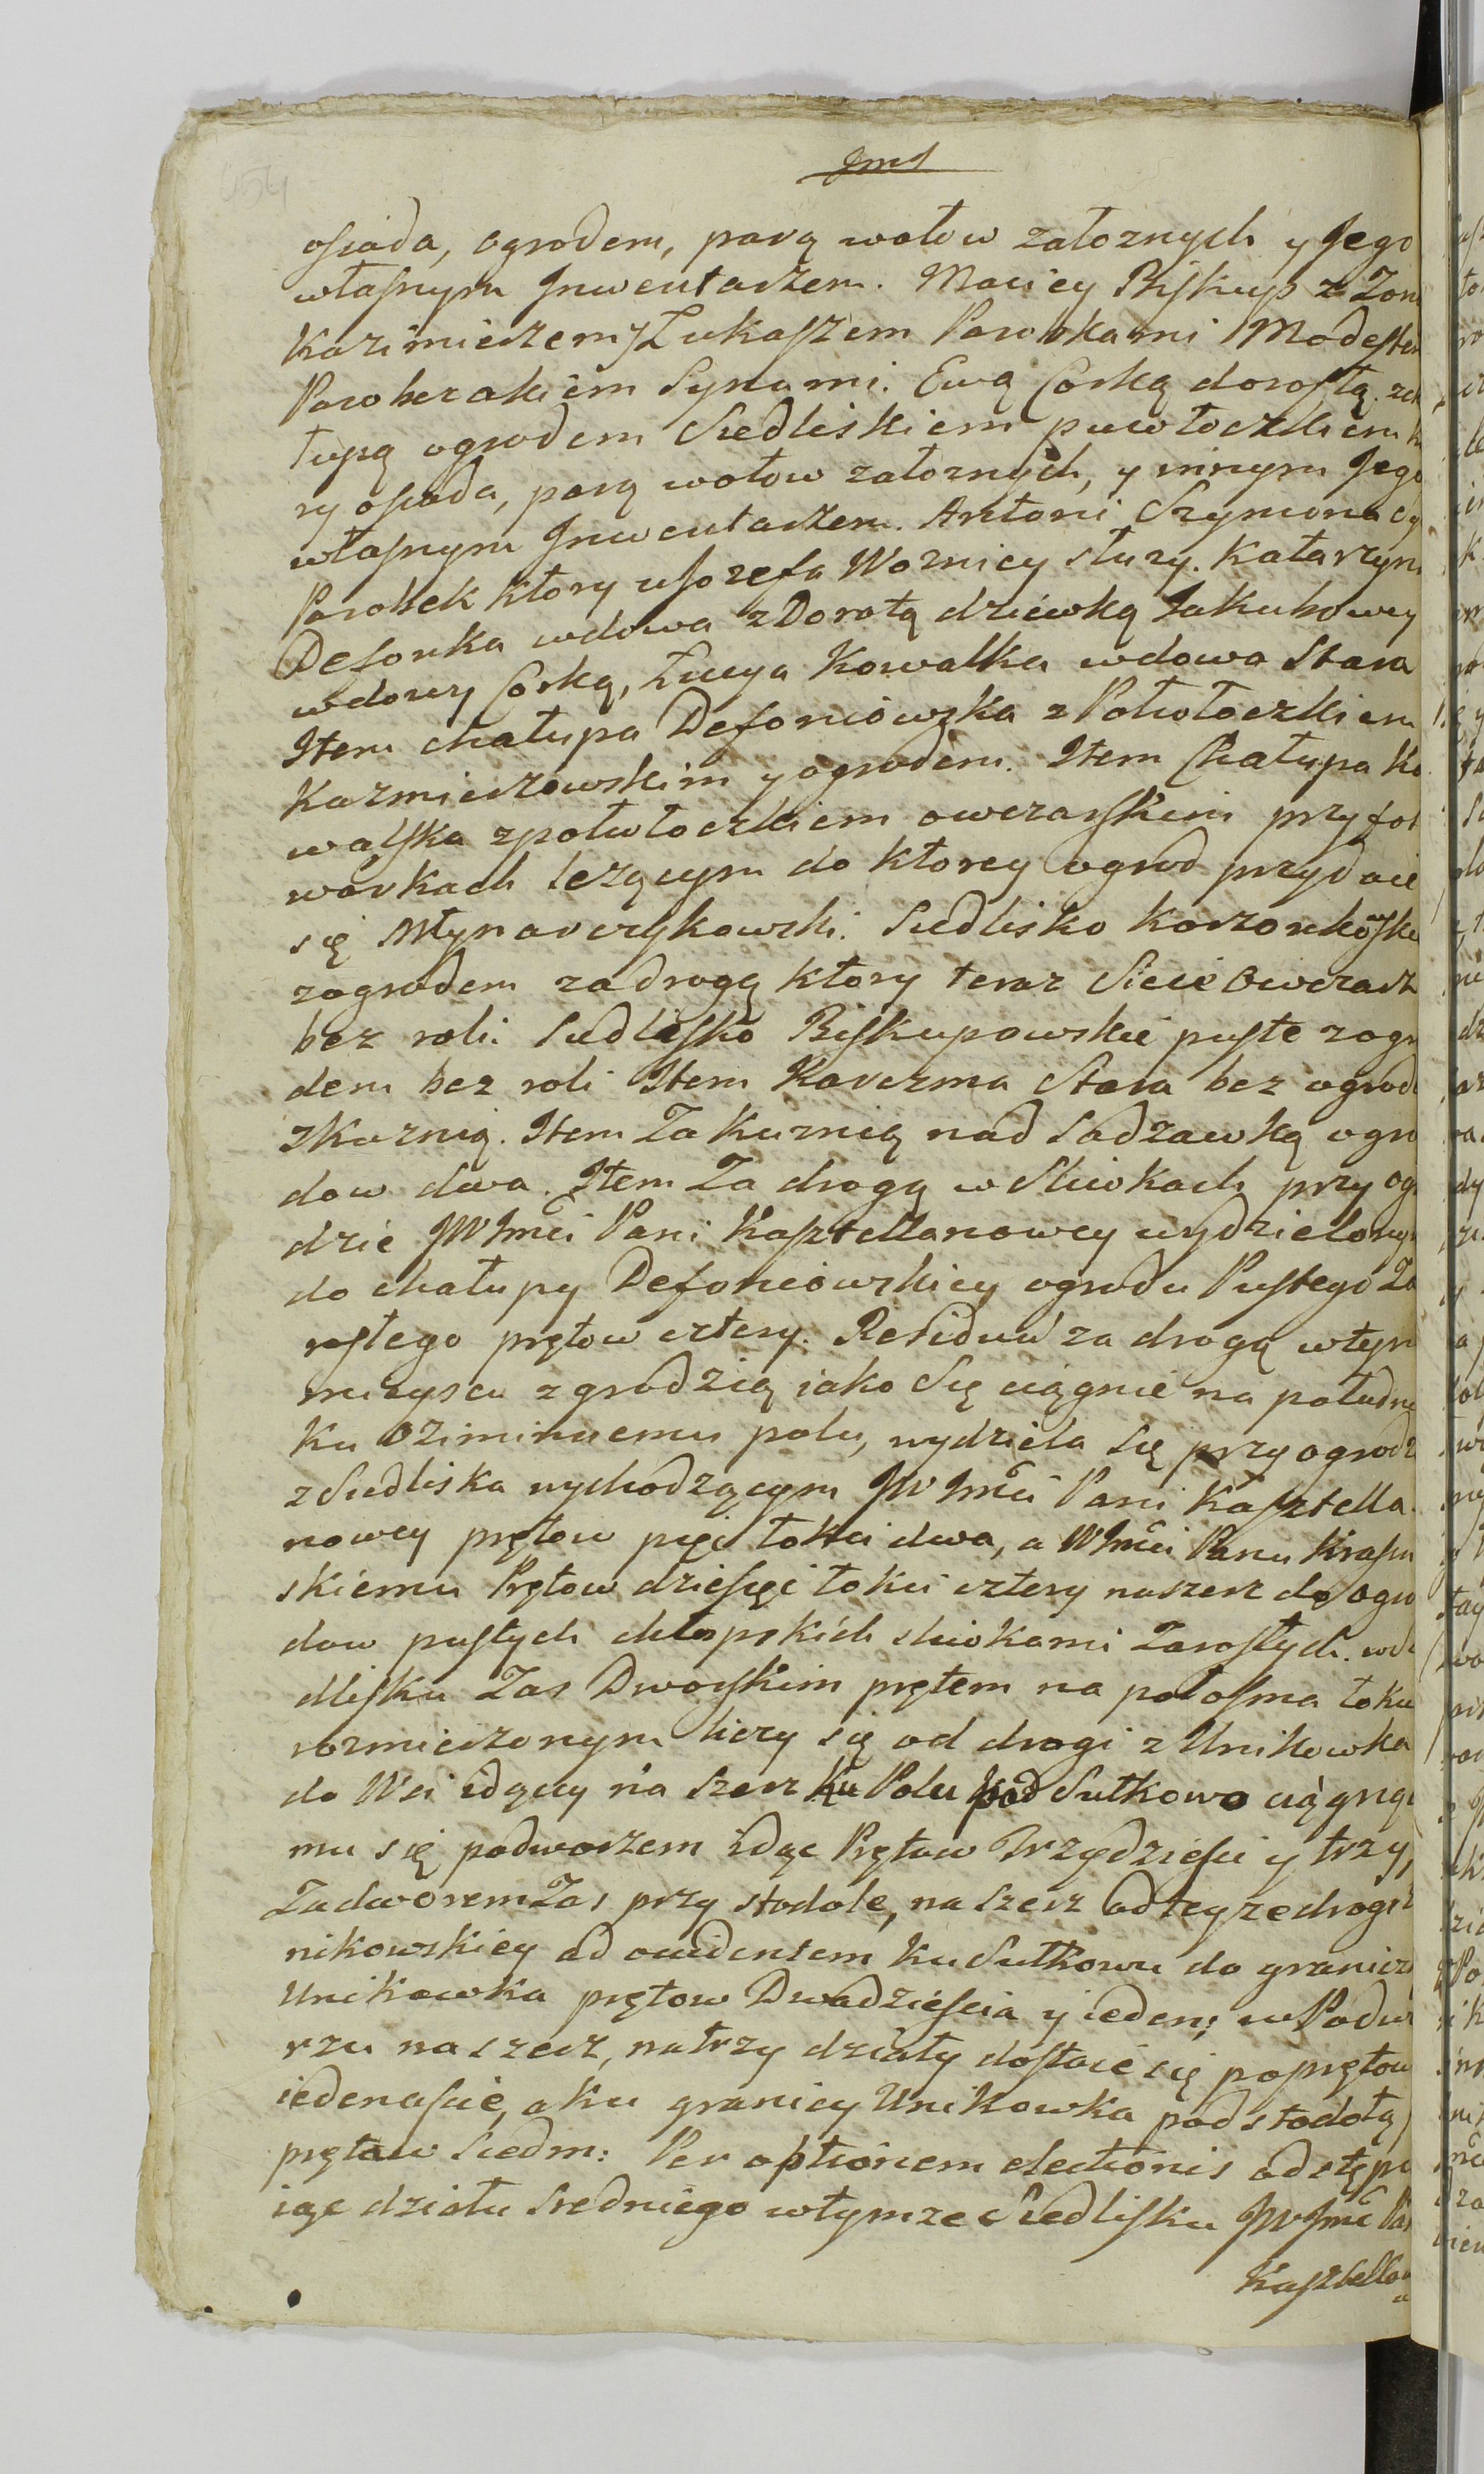 osiada, ogrodem, parą wołow załoznych y Jego
własnym Inwentarzem. Maciey Biskup z Zon
Kazimierzem y Łukaszem Parobkami Modestem
Parobczakiem Synami. Ewą Corką dorosłą. z cha
łupą ogrodem Siedliskiem puwłoczkiem k
ry osiada, parą wołow załoznych, y innym Jego
własnym Inwentarzem. Antoni Szymona
Parobek ktory u Jozefa Woznicy słuzy. Katarzyn
Defonka wdowa z Dorotą dziewką Jakubowey
wdowy Corką, Łucya Kowalka wdowa Stara
Item chałupa Defoniowska z Połwłoczkiem
Kazmierzowskim y ogrodem. Item Chałupa Ko
walska z połwłoczkiem owczarskim przy fol
warkach lezącym do ktorey ogrod przydaie
się Młynarczykowski. Siedlisko Korzonkowskie
z ogrodem za drogą ktory teraz Sieie Owczarz
bez roli. Siedlisko Biskupowskie puste z ogro
dem bez roli Item Karczma Stara bez ogrodu
z Kuznią. Item Za Kuznią nad Sadzawką ogro
dow dwa. Item Za drogą w Sliwkach przy ogr
dzie JW Imci Pani Kasztellanowey wydzielony
do chałupy Defoniowskiey ogrodu Pustego Za
rosłego prętow cztery. Residuum za drogą w tym
mieyscu z grodzią iako Się ciągnie na południe
Ku Oziminnemu polu, wydziela się przy ogrodz
z Siedliska wychodzącym JW Imci Pani Kasztella
nowey prętow pięć łokci dwa, a W Imci Panu Krasu
skiemu Prętow dziesięć łokci cztery naszerz do ogro
dow pustych chłopskich sliwkami Zarosłych. w Si
dlisku Zas Dworskim prętem na połosma łokcia
rozmierzonym liczy się od drogi z Unikowka
do Wsi idącey na Szerz Ku Polu pod Sutkowo ciągną
mu się podworzem idąc Prętow Trzydziesci y trzy,
Zadworem Zas przy stodole, na Szerz od teyze drogi
nikowskiey ad occidentem ku Sutkowu do granicz
Unikowka prętow Dwadziescia y ieden; w Podwo
rzu na szerz, na trzy działy dostaie się po prętow
iedenascie, a ku granicy Unikowka pod stodołą
prętow Siedm: Per optionem electionis odstępu
iąc działu Sredniego w tymze Siedlisku JW Imć Pan
Kasztellan